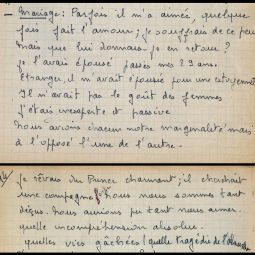 - Mariage : Parfois il m'a aimée, quelque
fois fait l'amour ; je souffrais de ce peu
mais que lui donnais-je en retour ?
je l'avais épousé passés mes 29 ans.
Etranger, il m'avait épousée pour une citoyenneté
Il n'avait pas le goût des femmes
J'étais inexperte et passive
Nous avions chacun notre marginalité mais
à l'opposé l'une de l'autre.
je rêvais du Prince charmant ; il cherchait
une compagne. Nous nous sommes tant
déçus. Nous aurions pu tant nous aimer.
quelle incompréhension absolue.
quelles vies gâchées ! quelle tragédie de l'